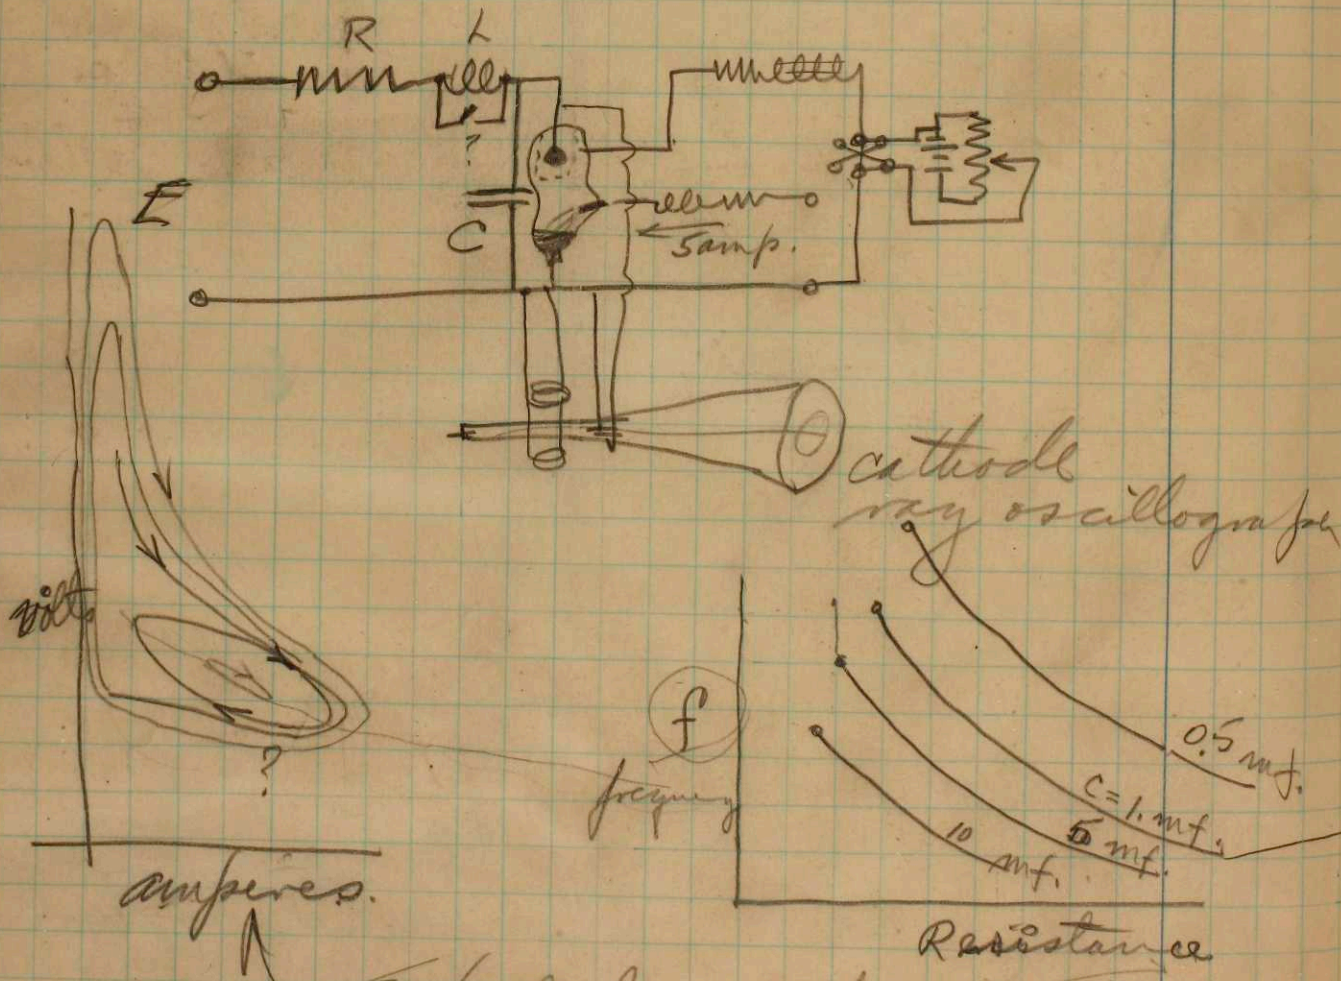 R L
?
E
C
5 amp.
cathode
ray oscillograph
volts
?
amperes.
f
frequency
0.5 mf.
C = 1. mf.
5 mf.
10 mf.
Resistance